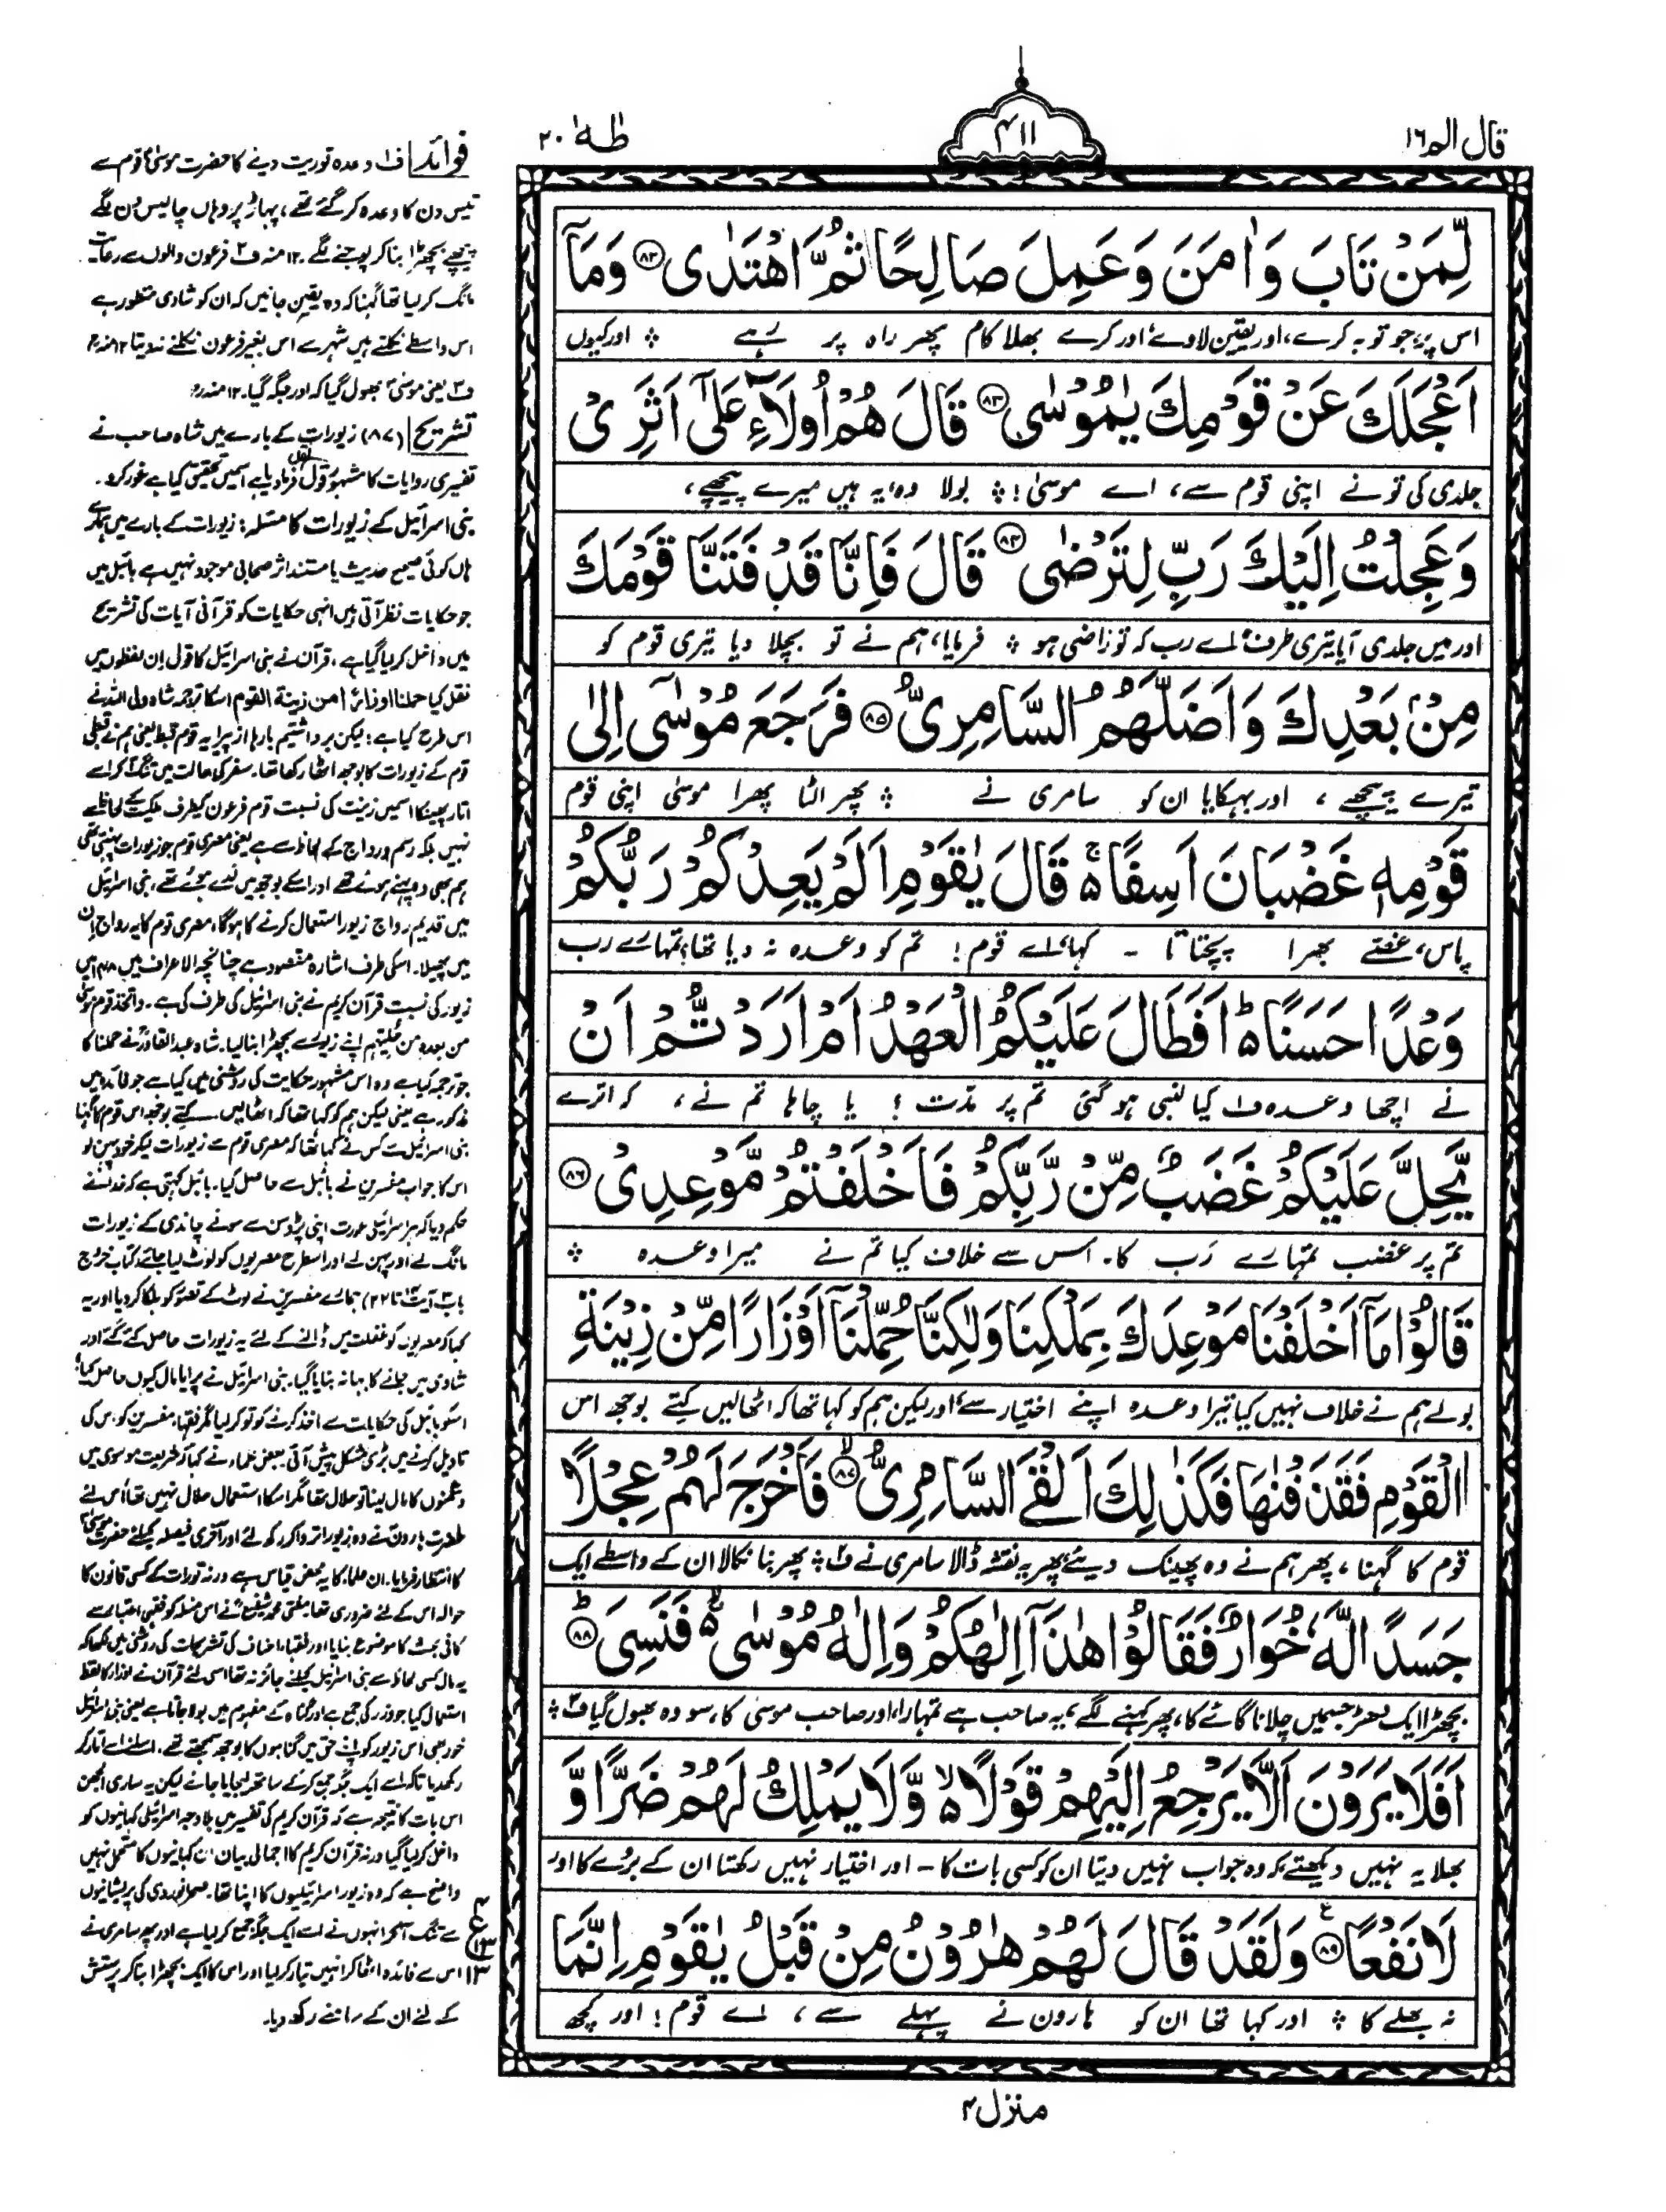 قال الم ١٦
٤١١
طٰهٰ ٢٠
لِّمَنْ تَابَ وَاٰمَنَ وَعَمِلَ صَالِحًا ثُمَّ اهْتَدٰى ﴿٨٢﴾ وَمَآ
اس پر، جو توبہ کرے، اور یقین لاوے، اور کرے بھلا کام پھر راہ پر رہے ؞ اور کیوں
اَعْجَلَكَ عَنْ قَوْمِكَ يٰمُوْسٰى ﴿٨٣﴾ قَالَ هُمْ اُولَآءِ عَلٰٓى اَثَرِيْ
جلدی کی تو نے اپنی قوم سے، اے موسیٰ! ؞ بولا وہ، یہ ہیں میرے پیچھے،
وَعَجِلْتُ اِلَيْكَ رَبِّ لِتَرْضٰى ﴿٨٤﴾ قَالَ فَاِنَّا قَدْ فَتَنَّا قَوْمَكَ
اور میں جلدی آیا تیری طرف، اے رب کہ تو راضی ہو ؞ فرمایا، ہم نے تو بچلا دیا تیری قوم کو
مِنْۢ بَعْدِكَ وَاَضَلَّهُمُ السَّامِرِيُّ ﴿٨٥﴾ فَرَجَعَ مُوْسٰٓى اِلٰى
تیرے پیچھے، اور بہکایا ان کو سامری نے ؞ پھر الٹا پھرا موسیٰ اپنی قوم
قَوْمِهٖ غَضْبَانَ اَسِفًا ۚ قَالَ يٰقَوْمِ اَلَمْ يَعِدْكُمْ رَبُّكُمْ
پاس، غصے بھرا پچتاتا - کہا، اے قوم! تم کو وعدہ نہ دیا تھا؟ تمہارے رب
وَعْدًا حَسَنًا ۗ اَفَطَالَ عَلَيْكُمُ الْعَهْدُ اَمْ اَرَدْتُّمْ اَنْ
نے اچھا وعدہ ف۱ کیا لنبی ہو گئی تم پر مدّت؟ یا چاہا تم نے، کہ اترے
يَّحِلَّ عَلَيْكُمْ غَضَبٌ مِّنْ رَّبِّكُمْ فَاَخْلَفْتُمْ مَّوْعِدِيْ ﴿٨٦﴾
تم پر غضب تمہارے رَب کا، اس سے خلاف کیا تم نے میرا وعدہ ؞
قَالُوْا مَآ اَخْلَفْنَا مَوْعِدَكَ بِمَلْكِنَا وَلٰكِنَّا حُمِّلْنَآ اَوْزَارًا مِّنْ زِيْنَةِ
بولے ہم نے خلاف نہیں کیا تیرا وعدہ اپنے اختیار سے، اور لیکن ہم کو کہا تھا کہ اٹھالیں کہتے بوجھ اس
الْقَوْمِ فَقَذَفْنٰهَا فَكَذٰلِكَ اَلْقَى السَّامِرِيُّ ﴿٨٧﴾ فَاَخْرَجَ لَهُمْ عِجْلًا
قوم کا گہنا، پھر ہم نے وہ پھینک دیئے، پھر یہ نقشہ ڈالا سامری نے ف۲ ؞ پھر بنا نکالا ان کے واسطے ایک
جَسَدًا لَّهٗ خُوَارٌ فَقَالُوْا هٰذَآ اِلٰهُكُمْ وَاِلٰهُ مُوْسٰى ۚ فَنَسِيَ ﴿٨٨﴾
بچھڑا ایک دھڑ جسمیں چلانا گائے کا، پھر کہنے لگے، یہ صاحب ہے تمہارا، اور صاحب موسیٰ کا، سو وہ بھول گیا ف۳ ؞
اَفَلَا يَرَوْنَ اَلَّا يَرْجِعُ اِلَيْهِمْ قَوْلًا ۙ وَّلَا يَمْلِكُ لَهُمْ ضَرًّا وَّ
بھلا یہ نہیں دیکھتے کہ وہ جواب نہیں دیتا ان کو کسی بات کا - اور اختیار نہیں رکھتا ان کے برُے کا اور
لَا نَفْعًا ﴿٨٩﴾ وَلَقَدْ قَالَ لَهُمْ هٰرُوْنُ مِنْ قَبْلُ يٰقَوْمِ اِنَّمَا
نہ بھلے کا ؞ اور کہا تھا ان کو ہارون نے پہلے سے، اے قوم! اور کچھ
منزل ٤
فوائد ف۱ وعدہ توریت دینے کا حضرت موسیٰؑ قوم سے
تیس دن کا وعدہ کر گئے تھے، پہاڑ پر وہاں چالیس دن لگے
پیچھے بچھڑا بنا کر پوجنے لگے۔ ۱۲ منہ ف۲ فرعون والوں سے رعایت
مانگ کر لیا تھا گہنا کہ وہ یقین جانیں کہ ان کو شادی منظور ہے
اس واسطے نکلتے ہیں شہر سے اس بغیر فرعون نکلنے نہ دیتا ۱۲ منہ
ف۳ یعنی موسیٰ بھول گیا کہ اور جگہ گیا۔ ۱۲ منہ
تشریح (۸۷) زیورات کے بارے میں شاہ صاحب نے
تفسیری روایات کا مشہور قول نقل فرما دیا ہے اسمیں تحقیق کیا ہے غور کرو۔
بنی اسرائیل کے زیورات کا مسئلہ: زیورات کے بارے میں ہمارے
ہاں کوئی صحیح حدیث یا مستند اثر صحابی موجود نہیں ہے بائبل میں
جو حکایات نظر آتی ہیں انہی حکایات کو قرآنی آیات کی تشریح
میں داخل کر لیا گیا ہے، قرآن نے بنی اسرائیل کا قول ان لفظوں میں
نقل کیا حملنا اوزارًا من زینة القوم اسکا ترجمہ شاہ ولی اللہ نے
اس طرح کیا ہے: لیکن برداشتیم بارہا از پیرایہ قوم قبط یعنی ہم نے قبطی
قوم کے زیورات کا بوجھ اٹھا رکھا تھا۔ سفر کی حالت میں تنگ آکر اسے
اتار پھینکا اسمیں زینت کی نسبت قوم فرعون کیطرف ملکیت کے لحاظ سے
نہیں بلکہ رسم و رواج کے لحاظ سے ہے یعنی مصری قوم جو زیورات پہنتی تھی
ہم بھی وہ پہنے ہوئے تھے اور اسکے بوجھ میں لدے ہوئے تھے، بنی اسرائیل
میں قدیم رواج زیور استعمال کرنے کا ہوگا، مصری قوم کا یہ رواج ان
میں پھیلا۔ اسکی طرف اشارہ مقصود ہے چنانچہ الاعراف میں ۱۴۸ میں
زیور کی نسبت قرآن کریم نے بنی اسرائیل کی طرف کی ہے۔ واتخذ قوم موسیٰ
من بعدہ من حلیھم اپنے زیور سے بچھڑا بنا لیا۔ شاہ عبدالقادرؒ نے حملنا کا
جو ترجمہ کیا ہے وہ اس مشہور حکایت کی روشنی میں کیا ہے جو فائدہ میں
مذکور ہے یعنی لیکن ہم کو کہا تھا کہ اٹھالیں کہتے بوجھ اس قوم کا گہنا
بنی اسرائیل سے کس نے کہا تھا کہ مصری قوم سے زیورات لیکر خود پہن لو
اس کا جواب مفسرین نے بائبل سے حاصل کیا۔ بائبل کہتی ہے کہ خدا نے
حکم دیا کہ ہر اسرائیلی عورت اپنی پڑوسن سے سونے چاندی کے زیورات
مانگ لے اور پہن لے اور اسطرح مصریوں کو لوٹ لیا جائے (کتاب خروج
باب ۳ آیت ۲۲) ہمارے مفسرین نے لوٹ کے تصور کو ہلکا کر دیا اور یہ
کہا کہ مصریوں کو غفلت میں ڈالنے کے لئے یہ زیورات حاصل کئے گئے اور
شادی میں جانے کا بہانہ بنایا گیا۔ بنی اسرائیل نے پرایا مال کیوں حاصل کیا؟
اسکو بائبل کی حکایات سے اخذ کرنے کو تو کر لیا مگر فقہاء مفسرین کو اس کی
تاویل کرنے میں بڑی مشکل پیش آئی بعض علماء نے کہا کہ شریعت موسوی میں
دشمنوں کا مال لینا تو حلال تھا مگر اسکا استعمال حلال نہیں تھا اس لئے
حضرت ہارون نے وہ زیور اتروا کر رکھ لئے اور آخری فیصلہ کیلئے حضرت موسیٰ
کا انتظار فرمایا۔ ان علماء کا یہ محض قیاس ہے ورنہ تورات کے کسی قانون کا
حوالہ اس کے لئے ضروری تھا مفتی محمد شفیعؒ نے اس مسئلہ کو فقہی اعتبار سے
کافی بحث کا موضوع بنایا اور فقہاء احناف کی تشریحات کی روشنی میں لکھا کہ
یہ مال کسی لحاظ سے بنی اسرائیل کیلئے جائز نہ تھا اسی لئے قرآن نے اوزار کا لفظ
استعمال کیا جو وزر کی جمع ہے اور گناہ کے مفہوم میں بولا جاتا ہے یعنی بنی اسرائیل
خود بھی اس زیور کو اپنے حق میں گناہوں کا بوجھ سمجھتے تھے۔ اسلئے اسے اتار کر
رکھدیا تاکہ اسے ایک جگہ جمع کرکے ساتھ لیجایا جائے لیکن یہ ساری الجھن
اس بات کا نتیجہ ہے کہ قرآن کریم کی تفسیر میں بلا وجہ اسرائیلی کہانیوں کو
داخل کر لیا گیا ورنہ قرآن کریم کا اجمالی بیان ان کہانیوں کا متحمل نہیں
واضح ہے کہ وہ زیور اسرائیلیوں کا اپنا تھا۔ صحرا نوردی کی پریشانیوں
سے تنگ آکر انہوں نے اسے ایک جگہ جمع کر لیا ہے اور پھر سامری نے
اس سے فائدہ اٹھا کر انہیں تیار کر لیا اور اس کا ایک بچھڑا بنا کر پرستش
کے لئے ان کے سامنے رکھ دیا۔
٤
ع
١٣
١٣